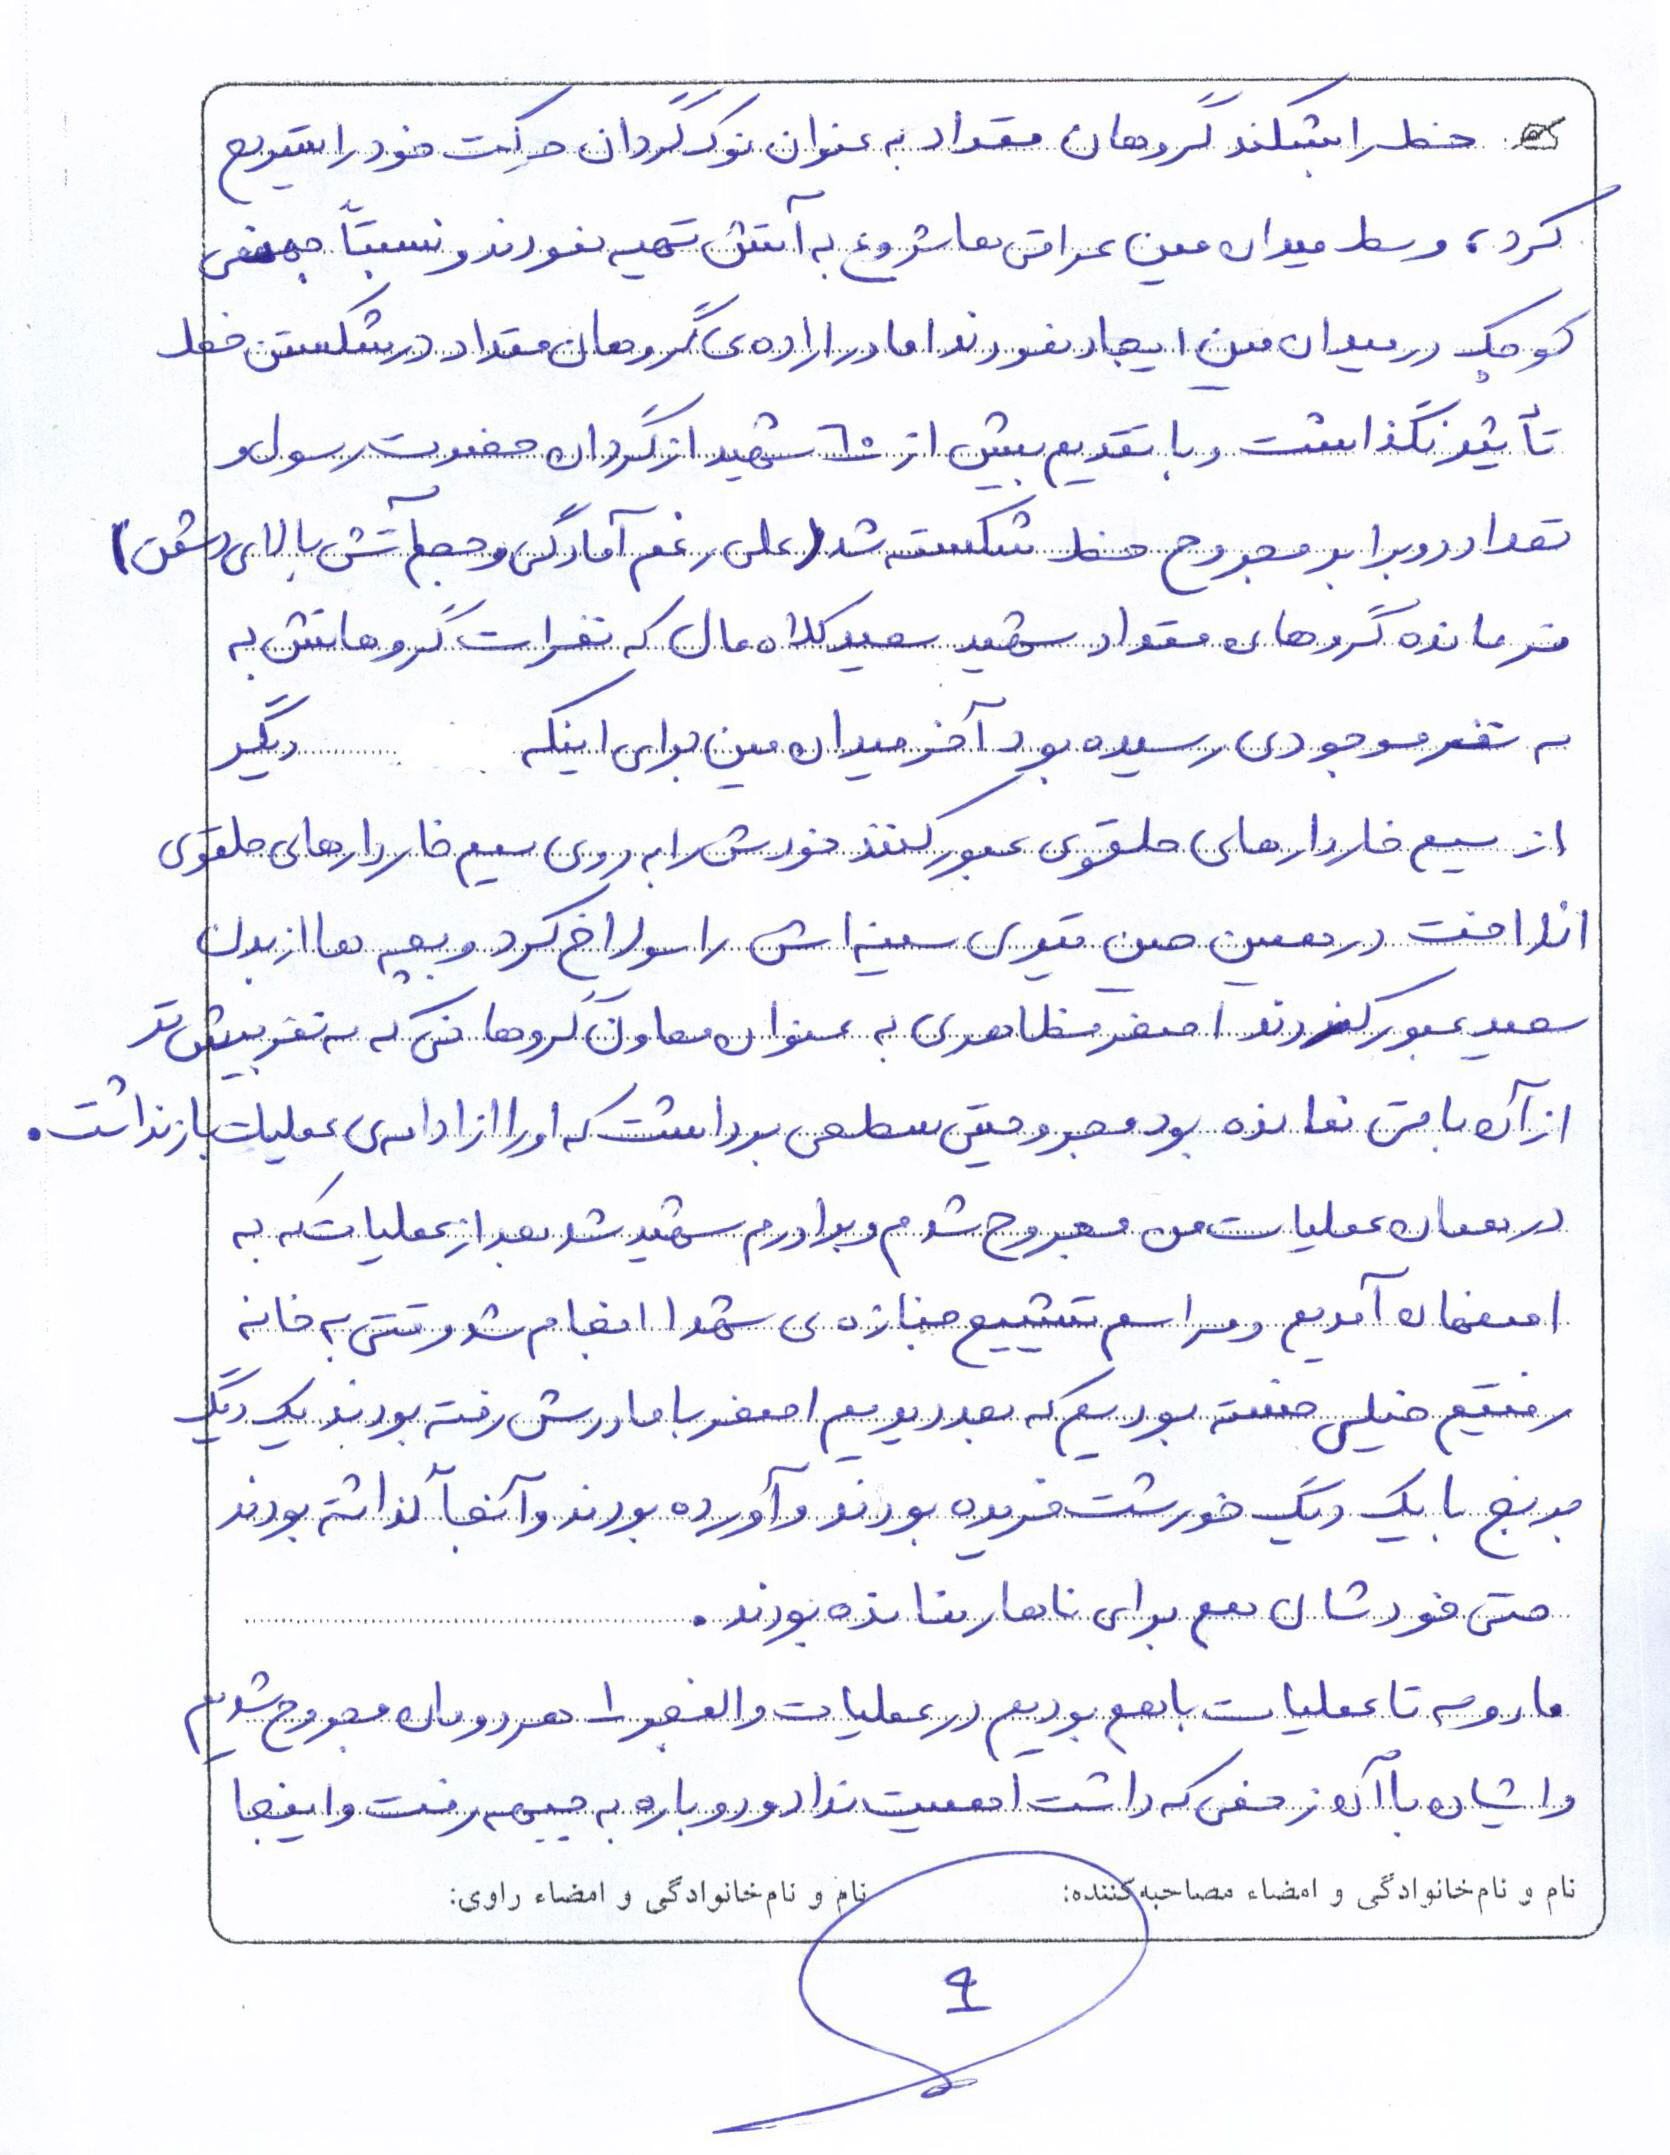 خط را بشکند گروهان مقداد به عنوان نوک گردان حرکت خود را شروع
کرد، وسط میدان مین عراقی ها شروع به آتش تهیه نمودند و نسبتاً جهنمی
کوچک در میدان مین ایجاد نمودند اما در اراده ی گروهان مقداد در شکستن خط
تأثیر نگذاشت و با تقدیم بیش از ۶۰ شهید از گردان حضرت رسول و
تعداد دو برابر مجروح خط شکسته شد (علی رغم آمادگی و حجم آتش بالای دشمن)
فرمانده گروهان مقداد شهید سعید کلاه مال که نفرات گروهانش به
سه نفر موجودی رسیده بود آخر میدان مین برای اینکه دیگر
از سیم خاردارهای حلقوی عبور کنند خودش را به روی سیم خاردارهای حلقوی
انداخت در همین حین تیری سینه اش را سوراخ کرد و بچه ها از بدن
سعید عبور کردند اصغر مظاهری به عنوان معاون گروهانی که سه نفر بیش تر
از آن باقی نمانده بود مجروحیتی سطحی برداشت که او را از ادامه ی عملیات باز نداشت.
در همان عملیات من مجروح شدم و برادرم شهید شد بعد از عملیات که به
اصفهان آمدیم و مراسم تشییع جنازه ی شهدا انجام شد وقتی به خانه
رفتیم خیلی خسته بودیم که بعد دیدیم اصغر با مادرش رفته بودند یک دیگ
برنج با یک دیگ خورشت خریده بودند و آورده بودند و آنجا گذاشته بودند
حتی خودشان هم برای ناهار نمانده بودند.
ما دو سه تا عملیات با هم بودیم در عملیات والفجر ۱ هر دومان مجروح شدیم
و ایشان با آن زخمی که داشت اهمیت نداد و دوباره به جبهه رفت و اینجا
نام و نام خانوادگی و امضاء مصاحبه کننده: نام و نام خانوادگی و امضاء راوی:
۹